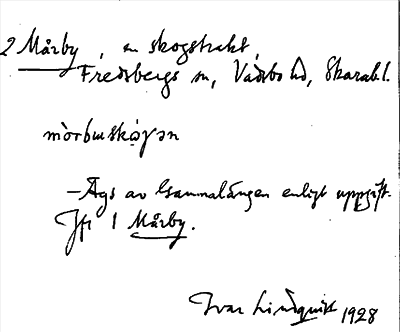 2 Mårby, en skogstrakt,
Fredsbergs sn, Vadsbo hd, Skarabl.
mòrbuskọγən
- Ägs av Gammalängen enligt uppgift.
Jfr 1 Mårby.
Ivar Lindquist 1928